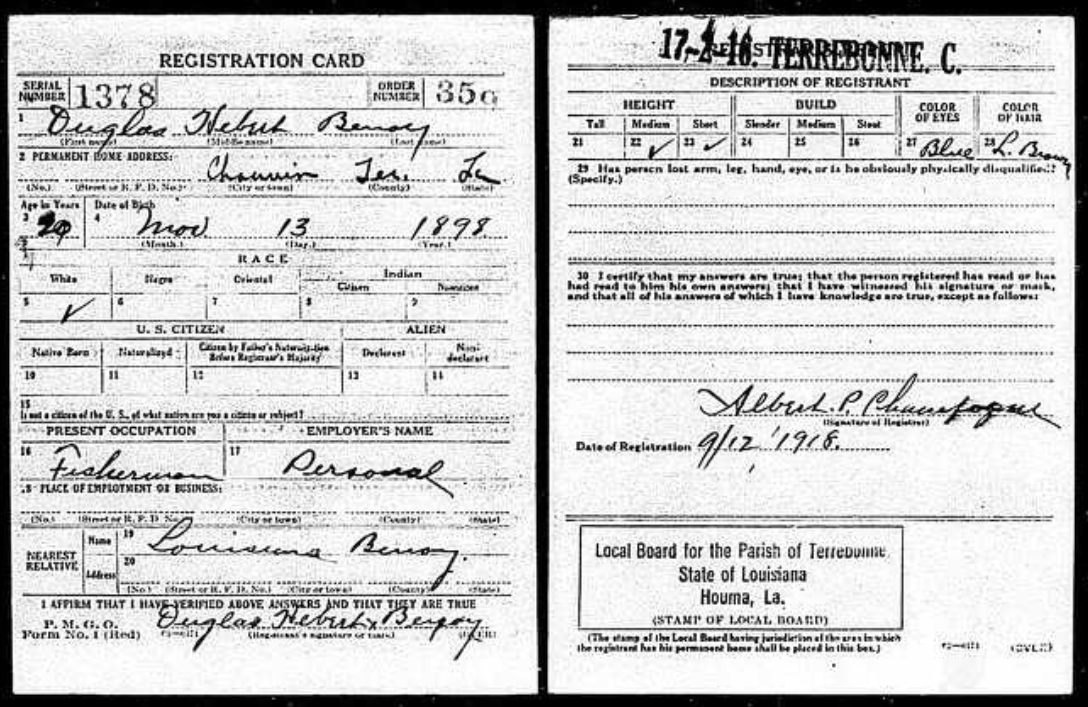 REGISTRATION CARD
SERIAL NUMBER 1378 ORDER NUMBER 350
1 Duglas Hebert Benoy
(First name) (Middle name) (Last name)
2 PERMANENT HOME ADDRESS:
Chauvin Ter. La
(No.) (Street or R. F. D. No.) (City or town) (County) (State)
Age in Years Date of Birth
3 4 Nov 13 1898
(Month.) (Day.) (Year.)
RACE
White Negro Oriental Indian
Citizen Noncitizen
5 ✓ 6 7 8 9
U. S. CITIZEN ALIEN
Native Born Naturalized Citizen by Father's Naturalization Before Registrant's Majority Declarant Non-declarant
10 11 12 13 14
15
If not a citizen of the U. S., of what nation are you a citizen or subject?
PRESENT OCCUPATION EMPLOYER'S NAME
16 Fisherman 17 Personal
18 PLACE OF EMPLOYMENT OR BUSINESS:
(No.) (Street or R. F. D. No.) (City or town) (County) (State)
NEAREST RELATIVE Name 19 Louisiana Benoy
Address 20
(No.) (Street or R. F. D. No.) (City or town) (County) (State)
I AFFIRM THAT I HAVE VERIFIED ABOVE ANSWERS AND THAT THEY ARE TRUE
P. M. G. O.
Form No. 1 (Red) Duglas Hebert x Benoy
(Registrant's signature or mark) (OVER)
17-2-16. TERREBONNE. C.
DESCRIPTION OF REGISTRANT
HEIGHT BUILD COLOR OF EYES COLOR OF HAIR
Tall Medium Short Slender Medium Stout
21 22 ✓ 23 ✓ 24 25 26 27 Blue 28 L. Brown
29 Has person lost arm, leg, hand, eye, or is he obviously physically disqualified?
(Specify.)
30 I certify that my answers are true; that the person registered has read or has
had read to him his own answers; that I have witnessed his signature or mark,
and that all of his answers of which I have knowledge are true, except as follows:
Albert P. Champagne
(Signature of Registrar)
Date of Registration 9/12 1918.
Local Board for the Parish of Terrebonne,
State of Louisiana
Houma, La.
(STAMP OF LOCAL BOARD)
(The stamp of the Local Board having jurisdiction of the area in which
the registrant has his permanent home shall be placed in this box.)
(OVER)